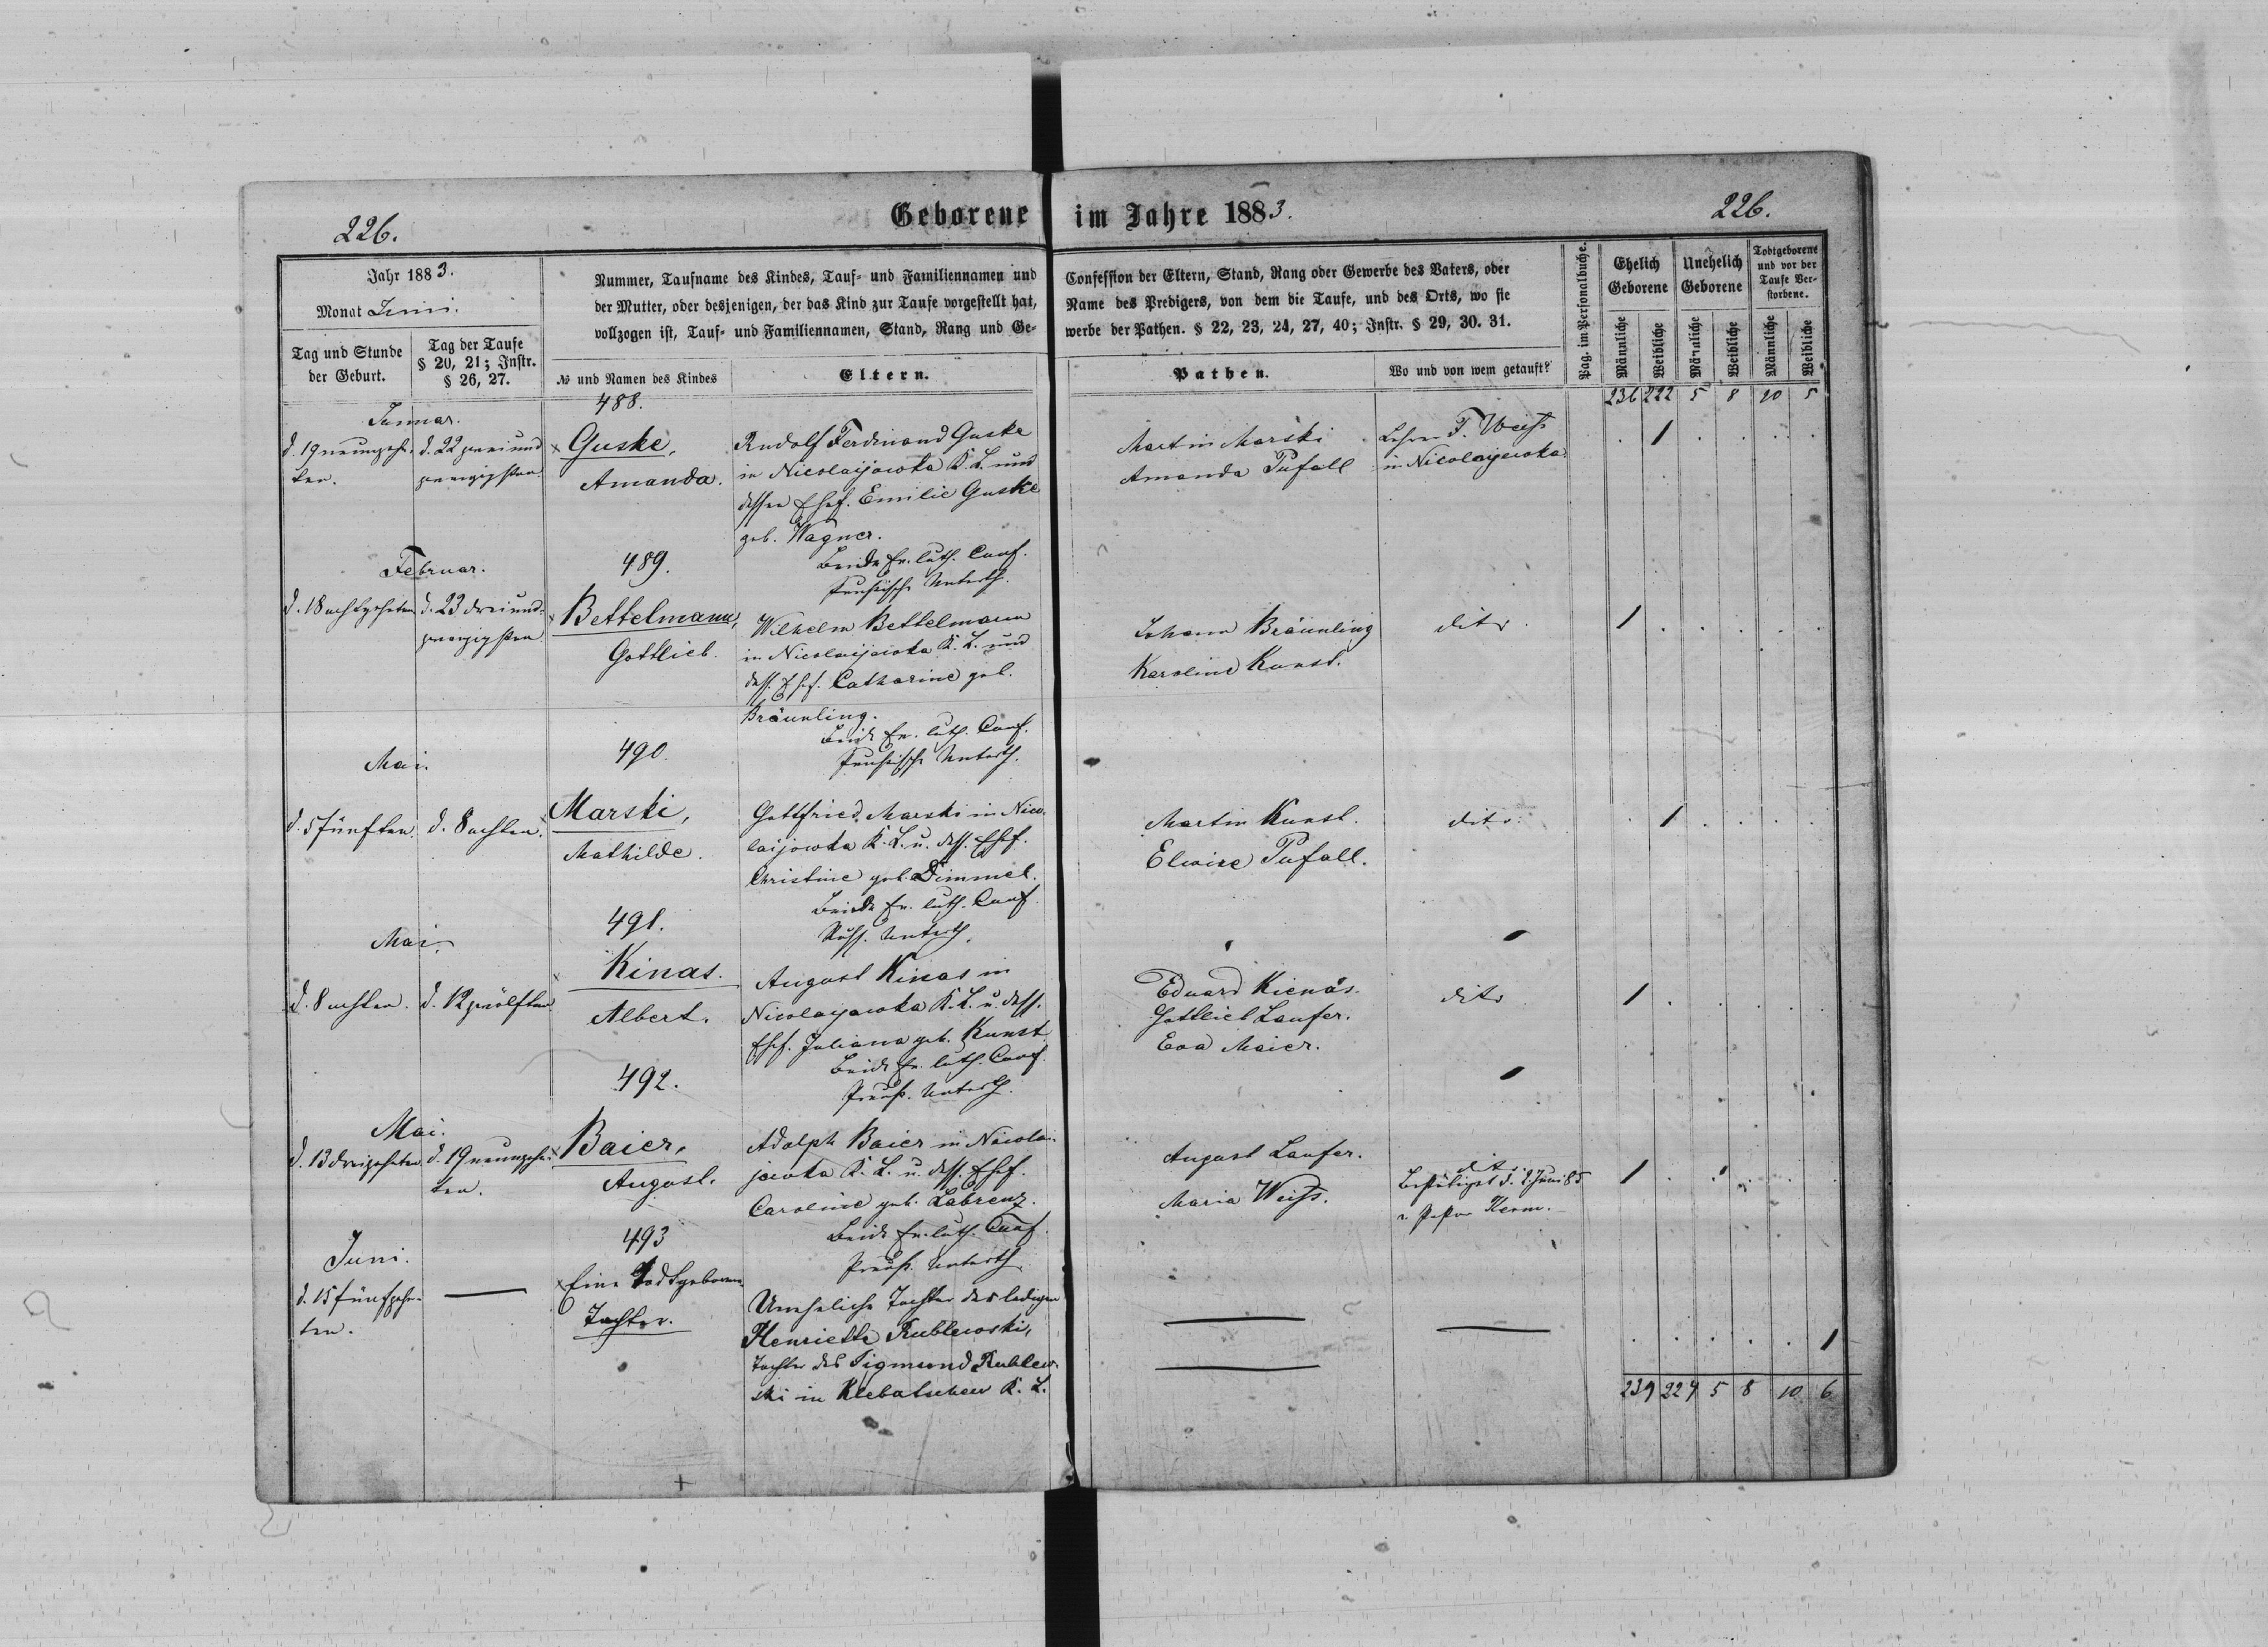 226.
Geborene im Jahre 1883.
226.
Jahr 1883.
Monat Juni.
Tag und Stunde der Geburt.
Tag der Taufe § 20, 21; Instr. § 26, 27.
Nummer, Taufname des Kindes, Tauf- und Familiennamen und
der Mutter, oder desjenigen, der das Kind zur Taufe vorgestellt hat,
vollzogen ist, Tauf- und Familiennamen, Stand, Rang und Ge-
№ und Namen des Kindes
Eltern.
Confession der Eltern, Stand, Rang oder Gewerbe des Vaters, oder
Name des Predigers, von dem die Taufe, und des Orts, wo sie
werbe der Pathen. § 22, 23, 24, 27, 40; Instr. § 29, 30. 31.
Pathen.
Wo und von wem getauft?
Pag. im Personalbuche.
Ehelich Geborene
Unehelich Geborene
Todtgeborene und vor der Taufe Verstorbene.
Männliche
Weibliche
Männliche
Weibliche
Männliche
Weibliche
236 222 5 8 10 5
Januar.
488.
d. 19 neunzehn-
ten.
d. 22 zwei und
zwanzigsten
Guske,
Amanda.
Rudolf Ferdinand Guske
in Nicolaijewka K. L. und
dessen Ehef. Emilie Guske
geb. Wagner.
Beide Ev. luth. Conf.
Preußische Unterth.
Martin Marski
Amanda Pufall
Lehrer F. Weiß
in Nicolayewka
1
Februar.
489.
d. 18 achtzehnten
d. 23 drei und-
zwanzigsten
Bettelmann,
Gottlieb.
Wilhelm Bettelmann
in Nicolaijewka K. L. und
dess. Ehef. Catharine geb.
Bräunling.
Beide Ev. luth. Conf.
Preußische Unterth.
Johann Bräunling
Karoline Kunst.
dito.
1
Mai.
490.
d. 5 fünften.
d. 8 achten.
Marski,
Mathilde.
Gottfried Marski in Nico-
laijewka K. L. u. dess. Ehef.
Christine geb. Dimmel.
Beide Ev. luth. Conf.
Russ. Unterth.
Martin Kunst.
Elwine Pufall.
dito.
1
Mai.
491.
d. 8 achten.
d. 12 zwölften
Kinas.
Albert.
August Kinas in
Nicolayewka K. L. u. dess.
Ehef. Juliana geb. Kunst.
Beide Ev. luth. Conf.
Preuß. Unterth.
Eduard Kienas.
Gottlieb Laufer.
Eva Maier.
dito
1
Mai.
492.
d. 13 dreizehnten
d. 19 neunzehn-
ten.
Baier,
August.
Adolph Baier in Nicolai-
jewka K. L. u. dess. Ehef.
Caroline geb. Labrenz.
Beide Ev. luth. Conf.
Preuß. Unterth.
August Laufer.
Maria Weiß.
dito.
Bestätigt d. 2 Juni 85
v. Pastor
1
Juni.
493
d. 15 fünfzehn-
ten.
Eine Todtgeborene
Tochter.
Uneheliche Tochter der ledigen
Henriette Rublewski,
Tochter des Sigmund Rublew-
ski in K. L.
1
239 224 5 8 10 6